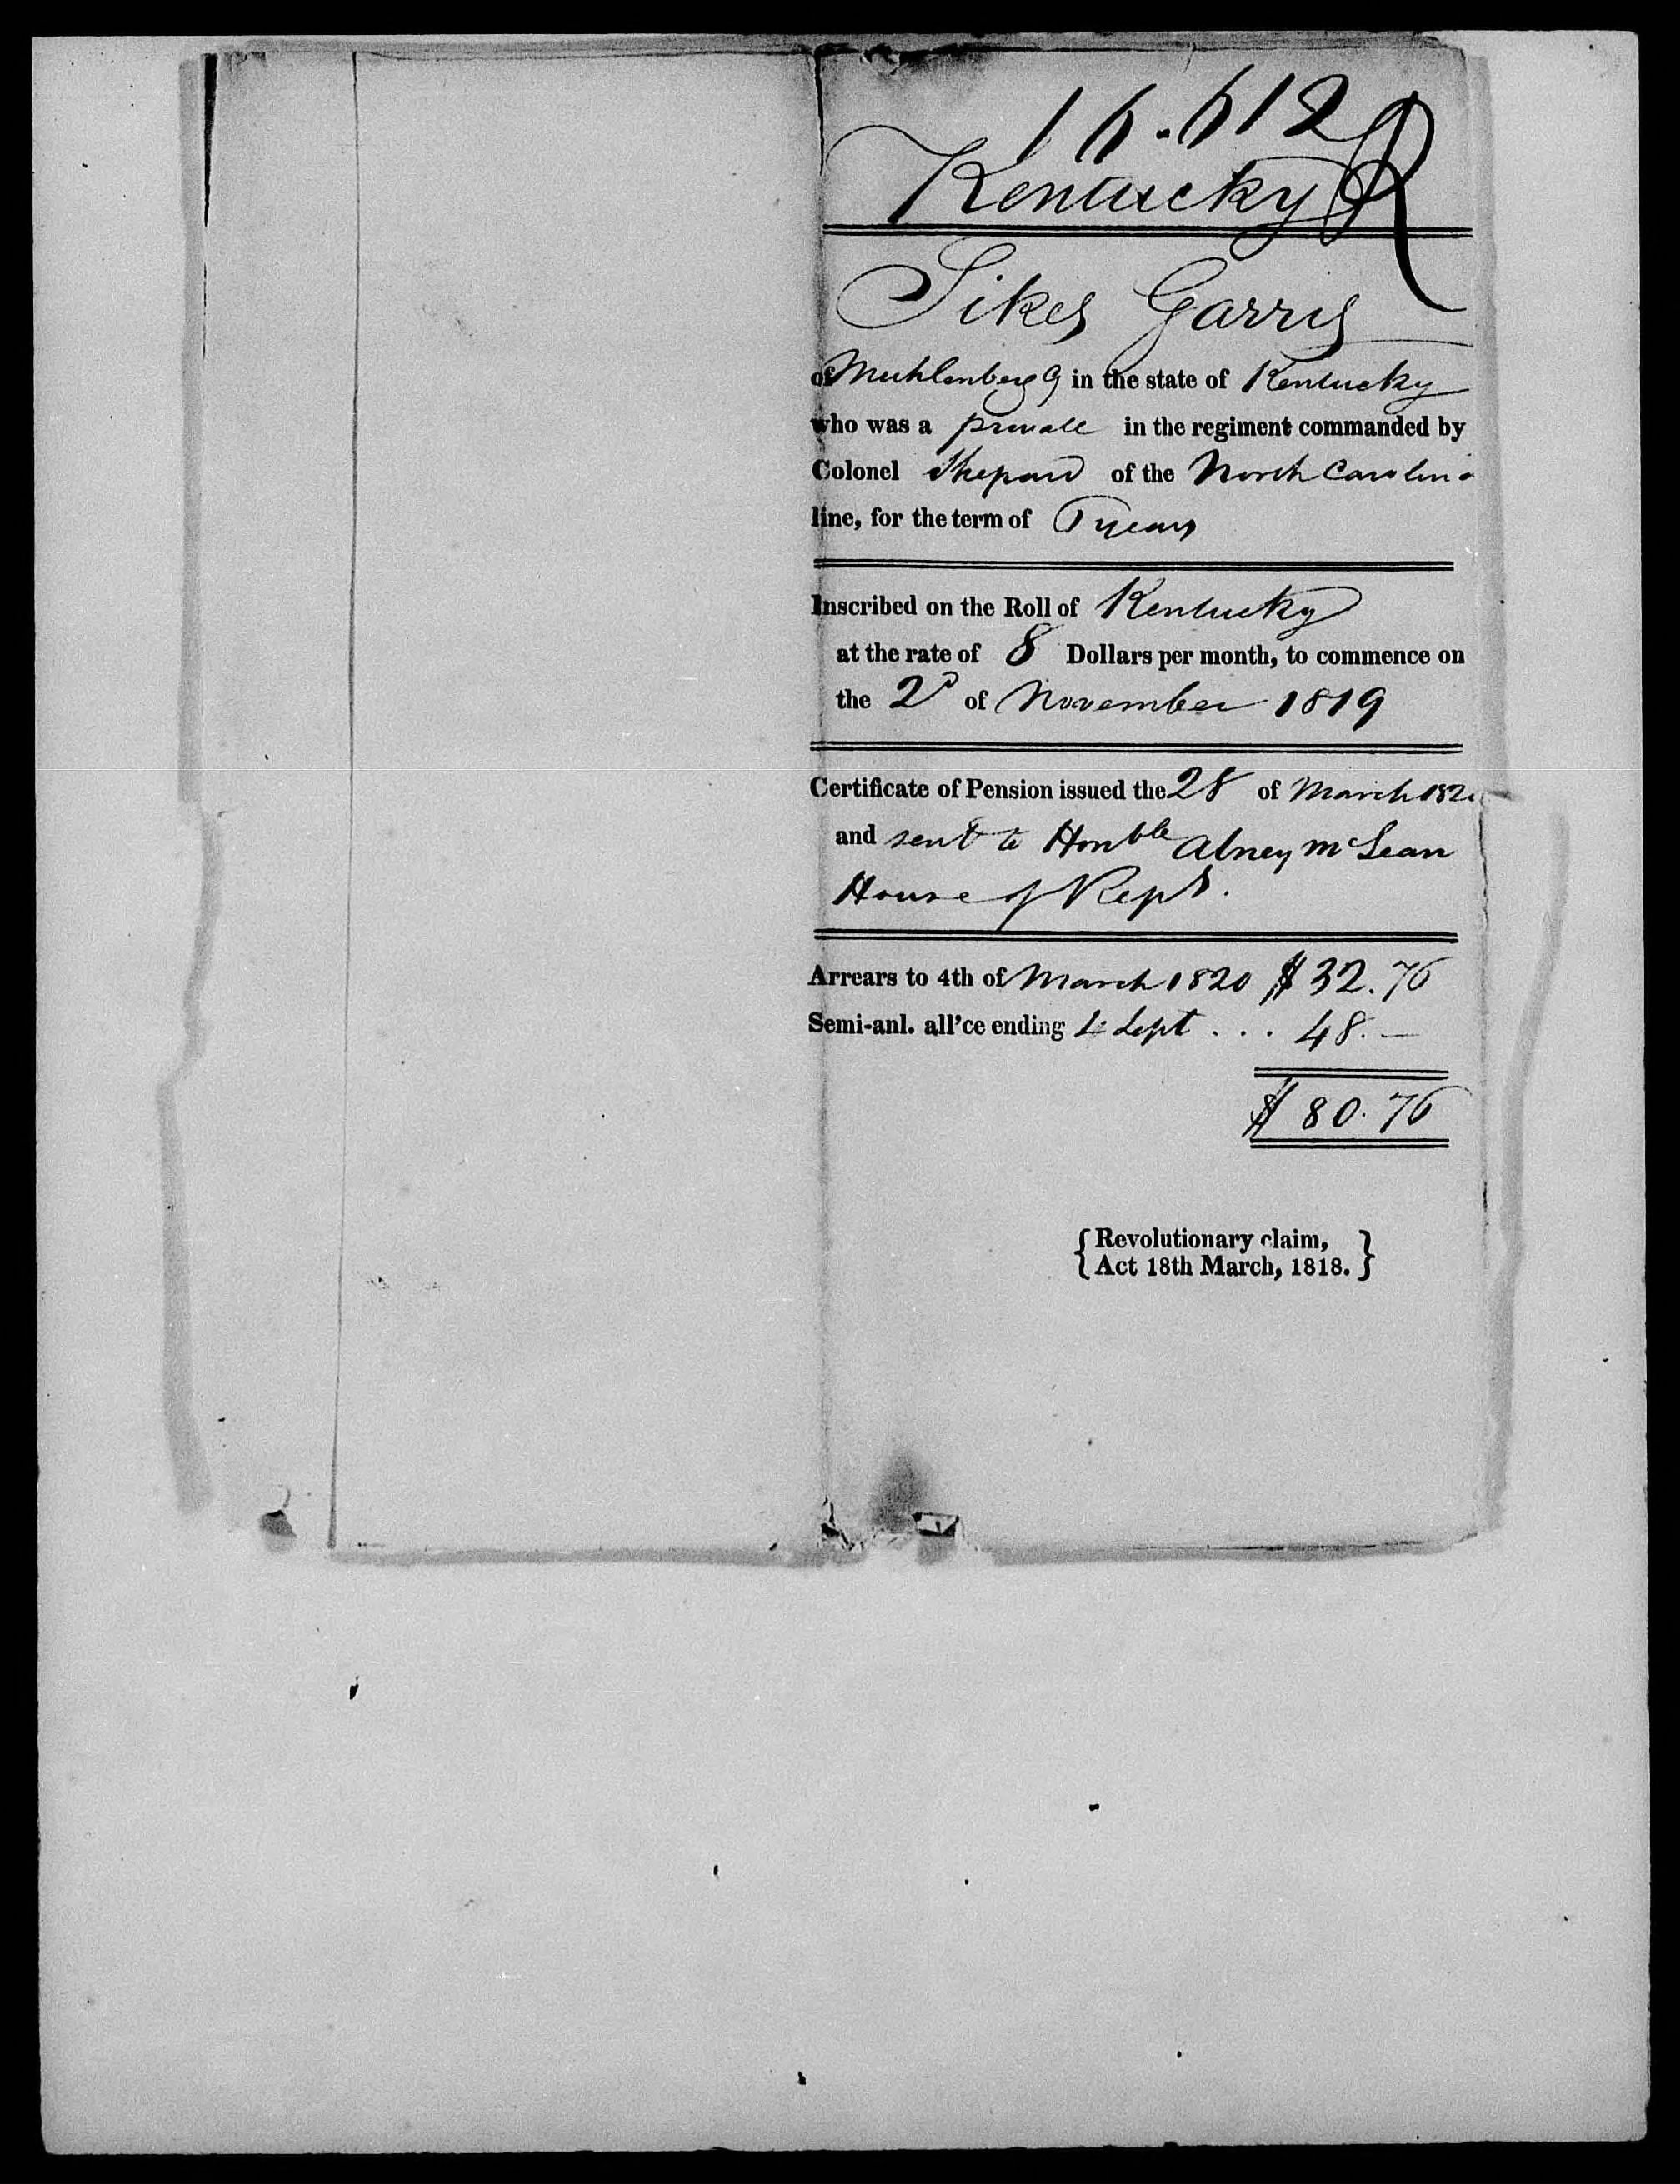 16.612
Kentucky R
Sikes Garris
of Muhlenberg in the state of Kentucky
who was a private in the regiment commanded by
Colonel Shepard of the North Carolina
line, for the term of years
Inscribed on the Roll of Kentucky
at the rate of 8 Dollars per month, to commence on
the 2d of November 1819
Certificate of Pension issued the 28 of March 182
and sent to Honble Alney McLean
House of Reps.
Arrears to 4th of March 1820 $32.76
Semi-anl. all'ce ending 4 Sept . . . 48.—
$ 80.76
{Revolutionary claim,
Act 18th March, 1818.}